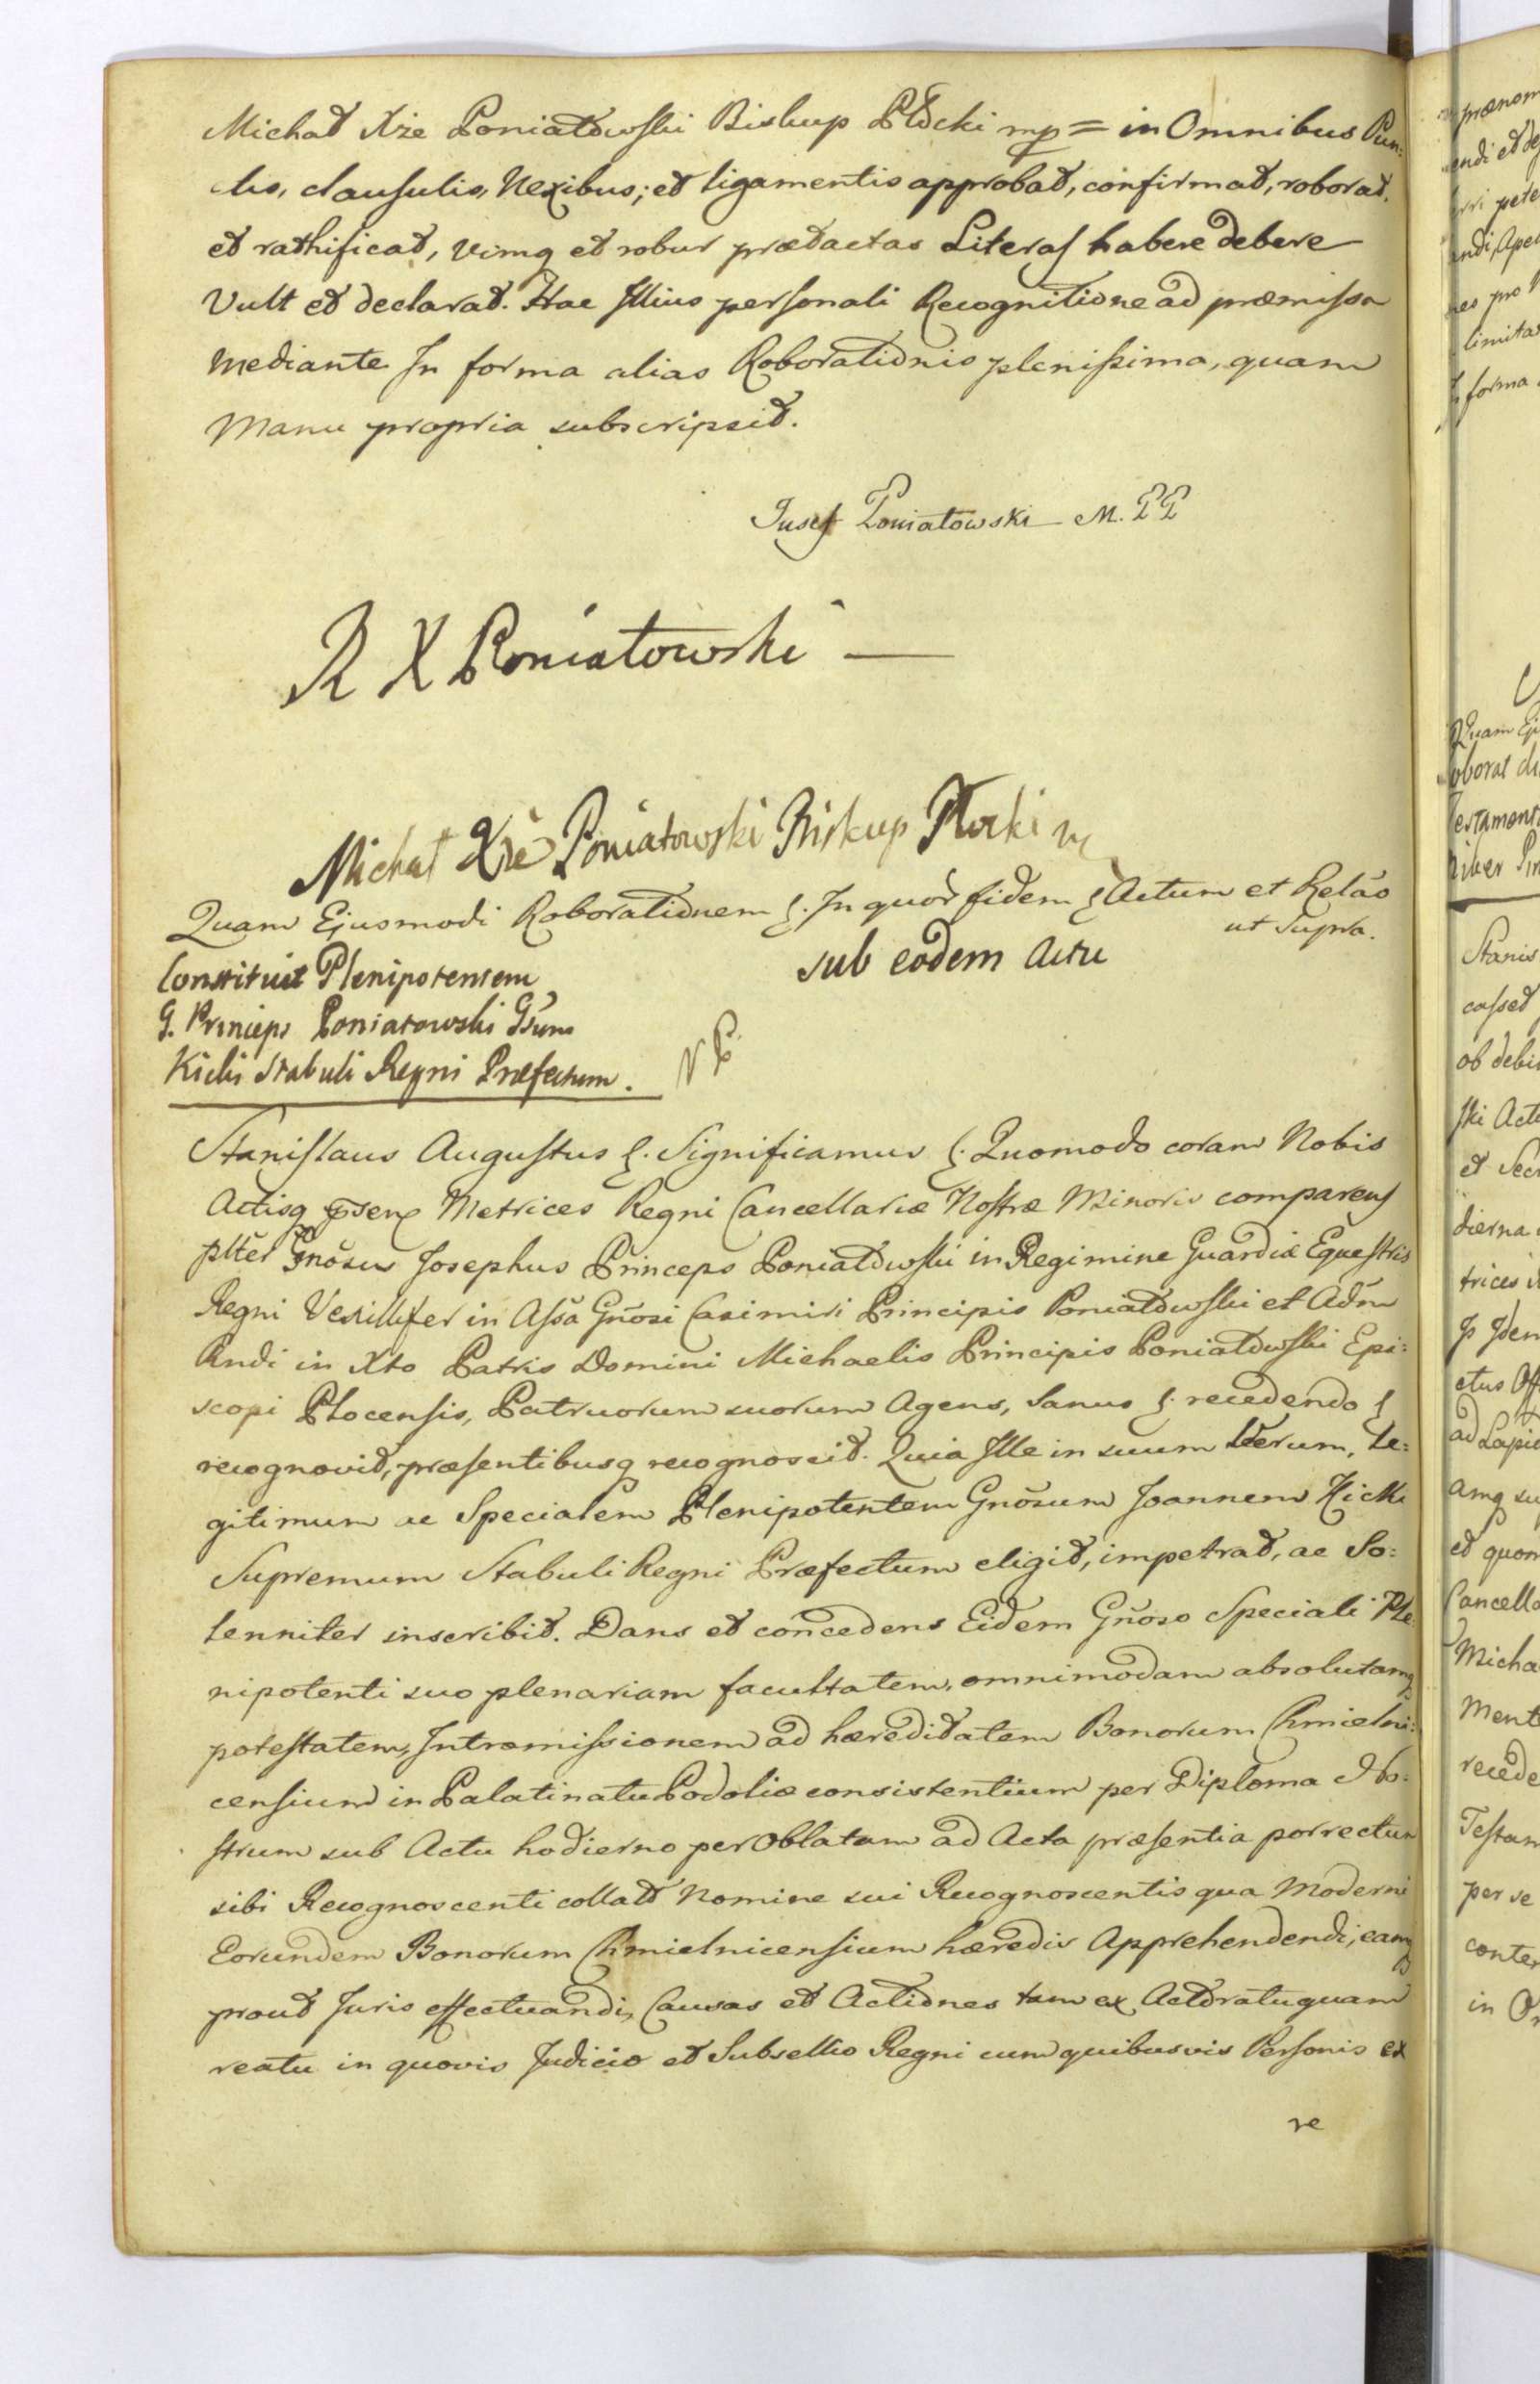 Michał Xże Poniatowski Biskup Płocki mp = in Omnibus Pun-
ctis, clausulis, Nexibus; et ligamentis approbat, confirmat, roborat.
et rathificat, vimq et robur prædactas Literas habere debere
Vult et declarat. Hac Illius personali Recognitione ad præmissa
mediante In forma alias Roborationis plenissima, quam
Manu propria subscripsit.
Jusef Poniatowski M. PP
K X Poniatowski —
Michał Xże Poniatowski Biskup Płocki
Quam Ejusmodi Roborationem &. In quor fidem & Actum et Relão
ut supra.
sub eodem Actu
Constituit Plenipotentem
G. Princeps Poniatowski Gsum
Kicki Stabuli Regni Præfectum.
Stanislaus Augustus &. Significamus &. Quomodo coram Nobis
Actisq Metrices Regni Cancellariæ Nostræ Minoris comparens
plter Gnõsus Josephus Princeps Poniatowski in Regimine Guardiæ Equestris
Regni Vexillifer in Assã Gnõsi Casimiri Principis Poniatowski et Adm̃
Rndi in Xto Patris Domini Michaelis Principis Poniatowski Epi:
scopi Plocensis, Patruorum suorum Agens, Sanus &. recedendo &
recognovit, præsentibusq recognoscit. Quia Ille in suum Verum, Le:
gitimum ac Specialem Plenipotentem Gnõsum Joannem Kicki
Supremum Stabuli Regni Præfectum eligit, impetrat, ac So:
lenniter inscribit. Dans et concedens Eidem Gnõso Speciali Ple
nipotenti suo plenariam facultatem, omnimodam absolutamq
potestatem, Intromissionem ad hæreditatem Bonorum Chmielni:
censium in Palatinatu Podoliæ consistentium per Diploma No:
strum sub Actu hodierno per Oblatam ad Acta præsentia porrectum
sibi Recognoscenti collat Nomine sui Recognoscentis qua Moderni
Eorundem Bonorum Chmielnicensium hæredis Apprehendendi, eamq
prout Juris effectuandi, Causas et Actiones tam ex Actoratu quam
reatu in quovis Judicio et Subsellio Regni cum quibusvis Personis ex
re